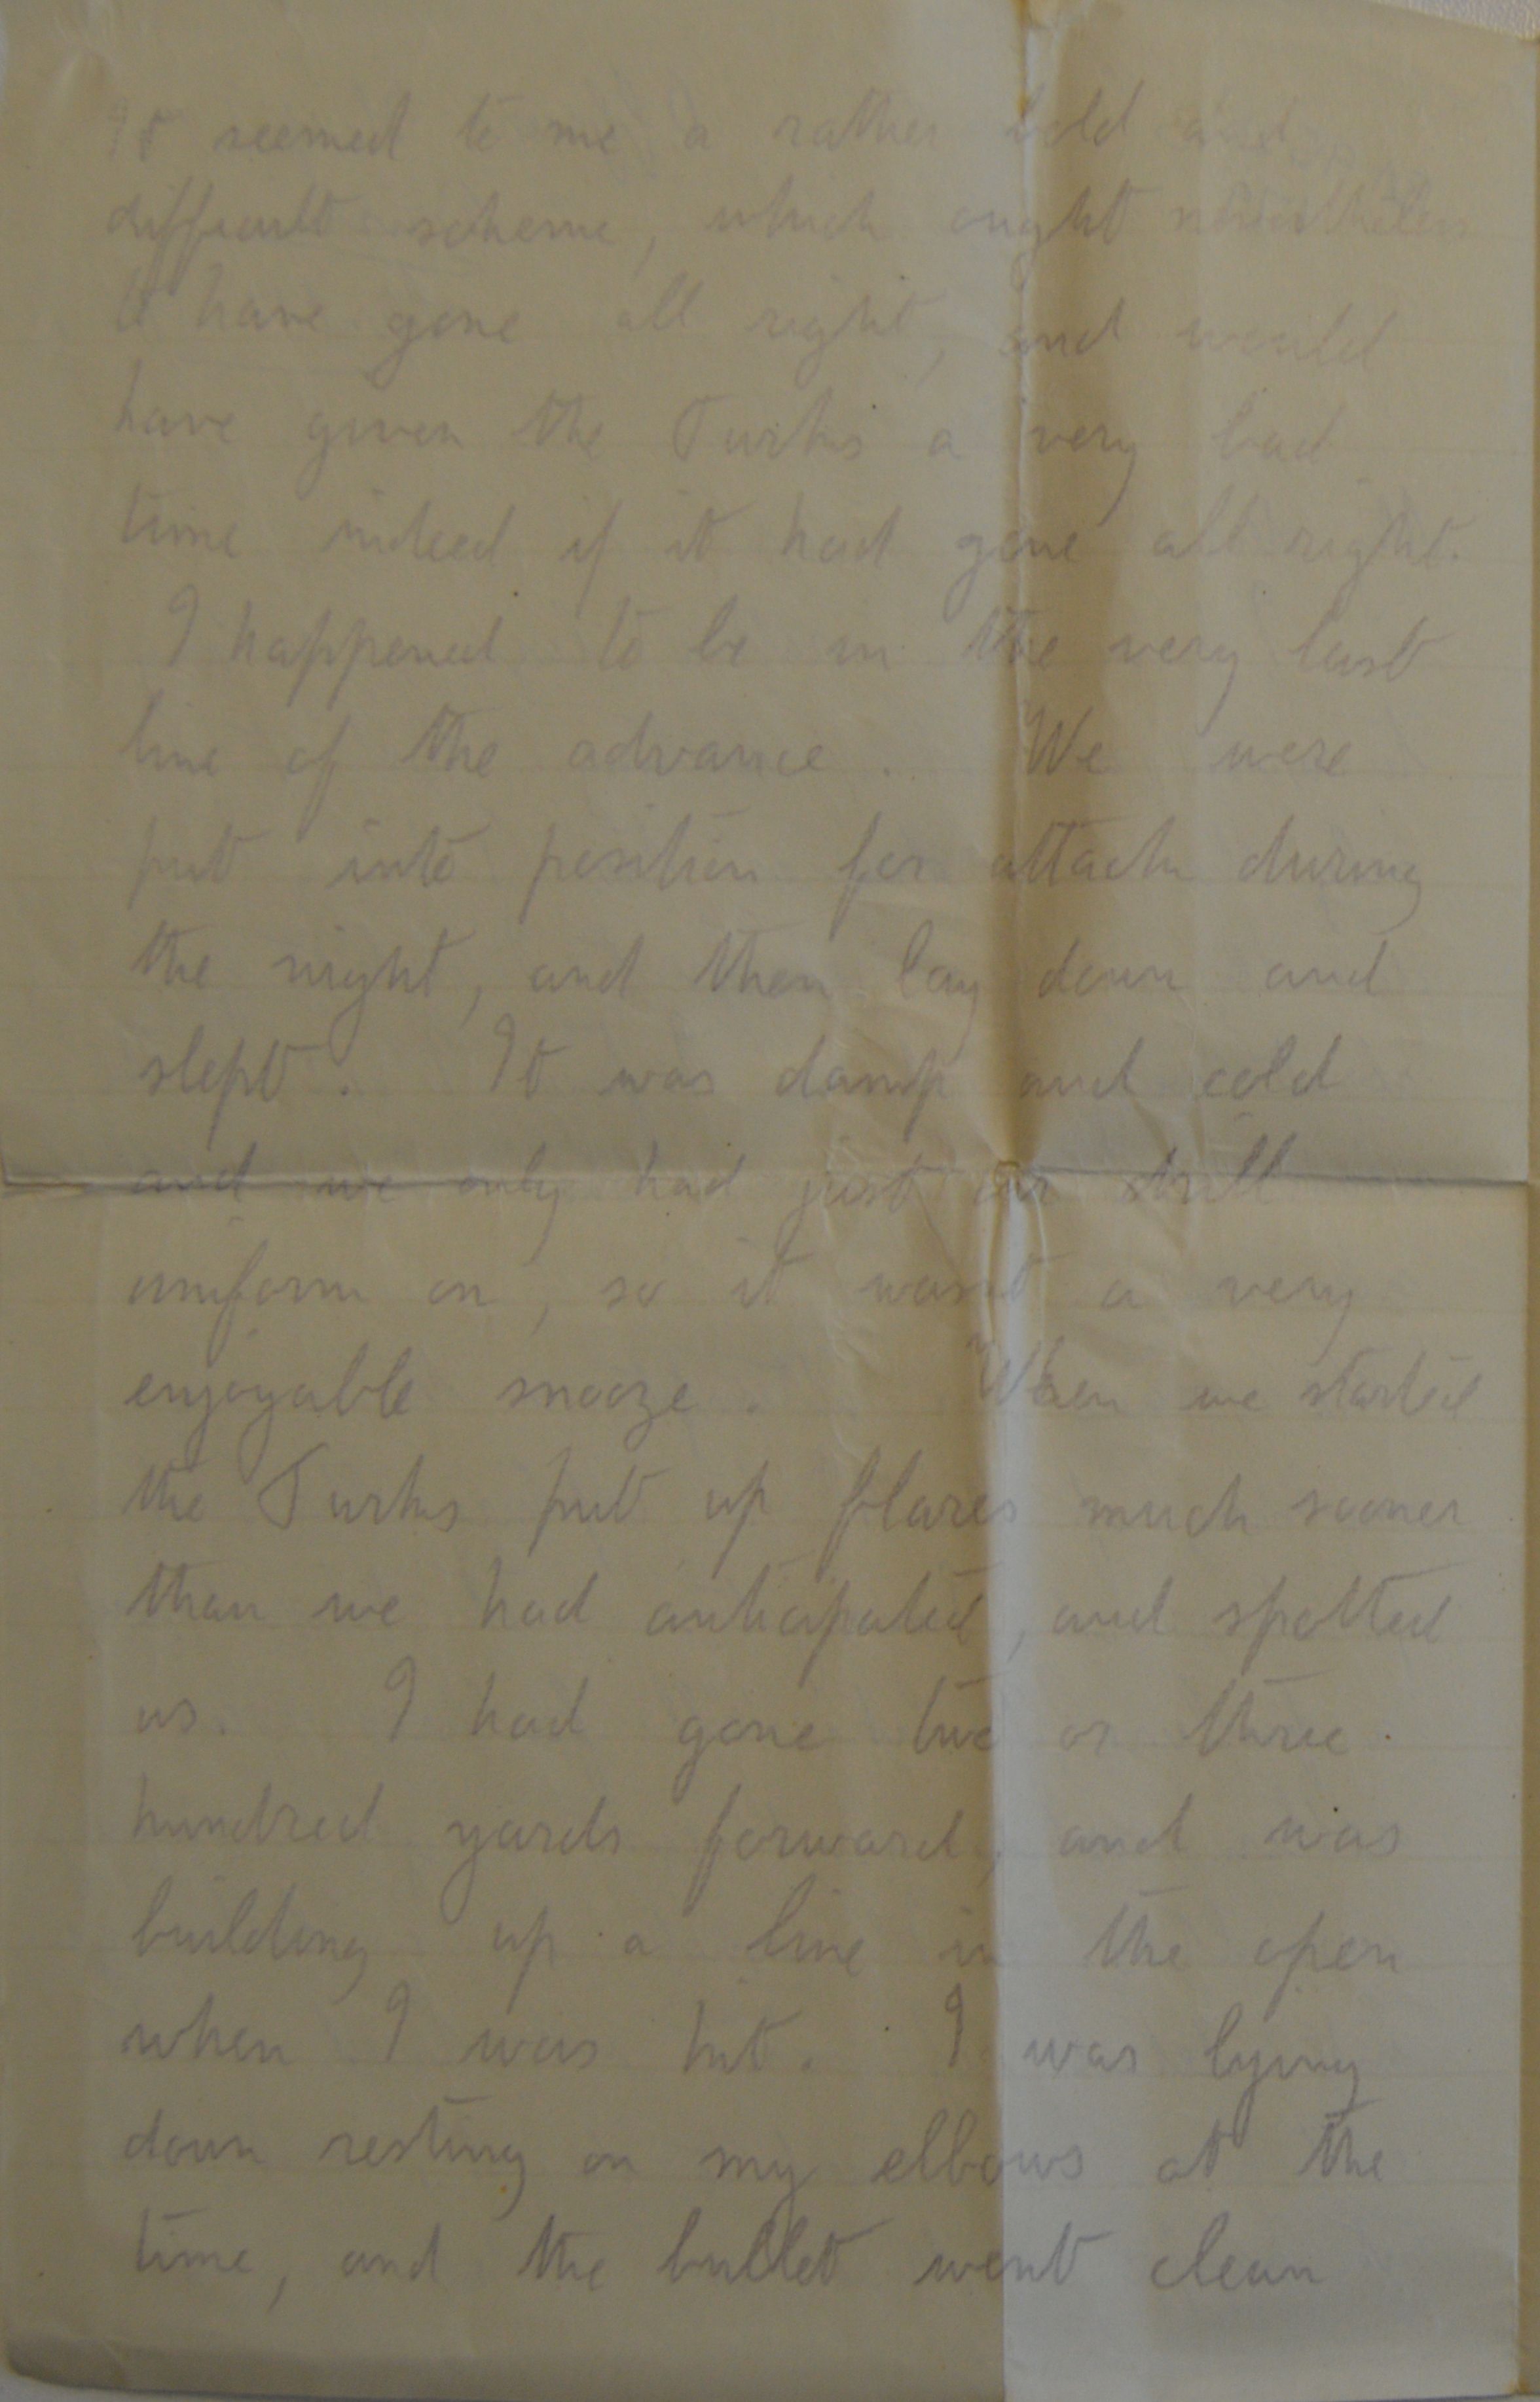 It seemed to me a rather bold and
difficult scheme, which ought nevertheless
to have gone all right, and would
have given the Turks a very bad
time indeed if it had gone all right.
I happened to be in the very last
line of the advance. We were
put into position for attack during
the night, and then lay down and
slept. It was damp and cold
and we only had just our drill
uniform on, so it wasnt a very
enjoyable snooze. When we started
the Turks put up flares much sooner
than we had anticipated, and spotted
us. I had gone two or three
hundred yards forward, and was
building up a line in the open
when I was hit. I was lying
down resting on my elbows at the
time, and the bullet went clean